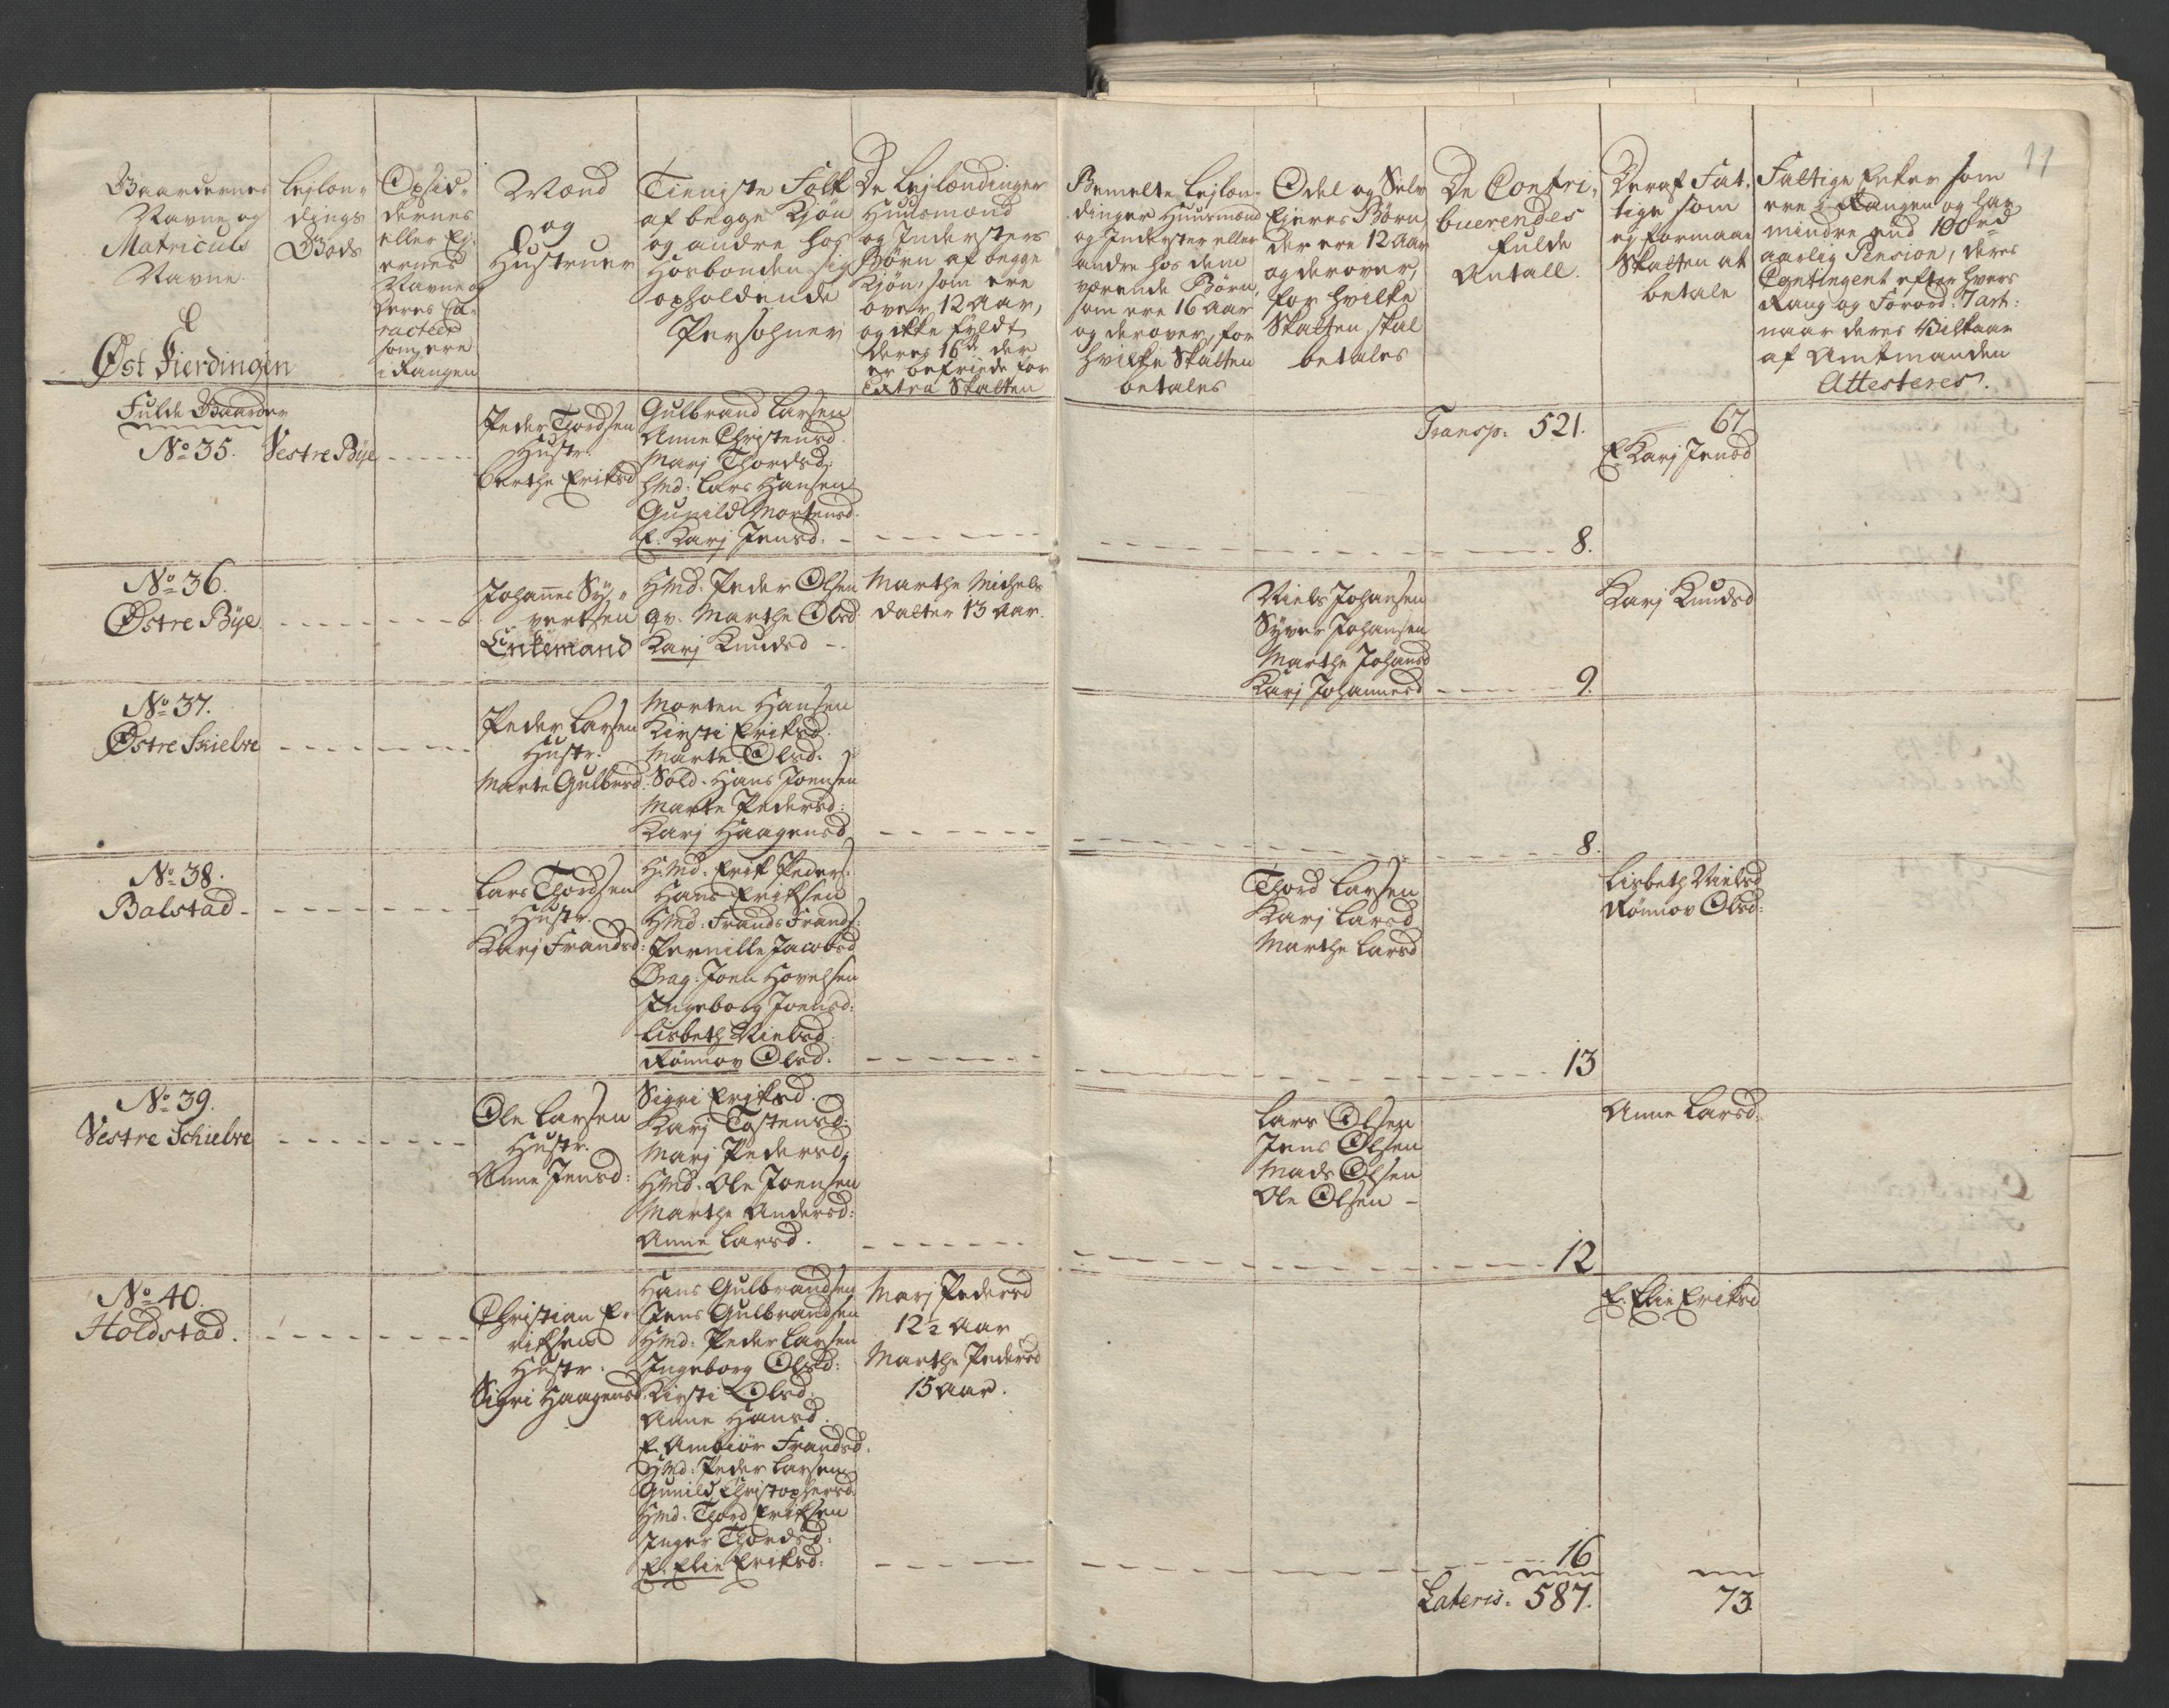 11
Gaardernes
Navne og
Matriculs
Navne.
Øst Fierdingen
Leylæn-
dings
Gods
Opsid-
dernes
eller Ej-
ernes
Navne og
deres Ca-
racteer
som ere
i Rangen
Mænd
og
Hustruer
Tieniste Folk
af begge Kjøn
og andre hos
Hosbonden sig
opholdende
Persohner
De Lejlændinger
Huusmænd
og Indersters
Børn af begge
Kjøn, som ere
over 12 Aar,
og ikke fyldt
deres 16de der
er befriede for
Extra Skatten
Bemelte Lejlæn-
dinger Huusmænd
og Inderster eller
andre hos dem
værende Børn,
som ere 16 Aar
og derover, for
hvilke Skatten
betales
Odel og Selv
Ejeres Børn
der ere 12 Aar
og derover,
for hvilke
Skatten skal
betales
De Contri-
buerendes
fulde
Antall.
Deraf Fat-
tige som
ej formaar
Skatten at
betale
Fattige Enker som
ere i Rangen og har
mindre end 100 rd
aarlig Pension, deres
Contingent efter hvers
Rang og Forord: 7 art:
naar deres Vilkaar
af Amtmanden
Attesteres.
Fulde Gaarder
No 35. Vestre Bÿe
Peder Thordsen
Hustr.
Berthe Eriksd
Gulbrand Larsen
Anne Christensd.
Marj Thordsd.
Hmd: Lars Hansen
Gunild Mortensd.
E. Karj Jensd.
Transp: 521.
67
E. Karj Jensd
8.
No 36.
Østre Bÿe.
Johannes Sÿ-
vertsen
Enkemand
Hmd. Peder Olsen
Qv. Marthe Olsd.
Karj Knudsd
Marthe Michels
datter 13 Aar.
Niels Johansen
Sÿver Johansen
Marthe Johansd
Karj Johannesd
9.
Karj Knudsd
No 37.
Østre Skielve
Peder Larsen
Hustr.
Marte Gulbrsd.
Morten Hansen
Kirsti Eriksd.
Marte Olsd.
Sold. Hans Joensen
Marte Pedersd:
Karj Haagensd
8.
No 38.
Balstad
Lars Thordsen
Hustr.
Karj Frandsd:
Hmd. Erik Peders:
Hans Eriksen
Hmd: Frands Frands:
Pernille Jacobsd
Drag. Joen Hovelsen
Ingeborg Joensd:
Lisbeth Nielsd
Rønnov Olsd.
Thord Larsen
Karj Larsd
Marthe Larsd
13
Lisbeth Nielsd
Rønnov Olsd:
No 39.
Vestre Schielve
Ole Larsen
Hustr.
Anne Jensd:
Sigri Eriksd.
Karj Tostensd.
Marj Pedersd.
Hmd. Ole Joensen
Marthe Andersd:
Anne Larsd.
Lars Olsen
Jens Olsen
Mads Olsen
Ole Olsen
12
Anne Larsd.
No 40.
Holdstad.
Christian Er-
riksen
Hustr.
Sigri Haagensd.
Hans Gulbrandsen
Jens Gulbrandsen
Hmd: Peder Larsen
Ingeborg Olsd:
Kirsti Olsd.
Anne Hansd.
E. Ambiør Frandsd.
Hmd: Peder Larsen
Gunild Christophersd.
Hmd. Thord Eriksen
Inger Thordsd:
E. Elie Eriksd:
Marj Pedersd
12½ Aar
Marthe Pedersd
15 Aar.
E. Elie Eriksd
16
Lateris: 587.
73